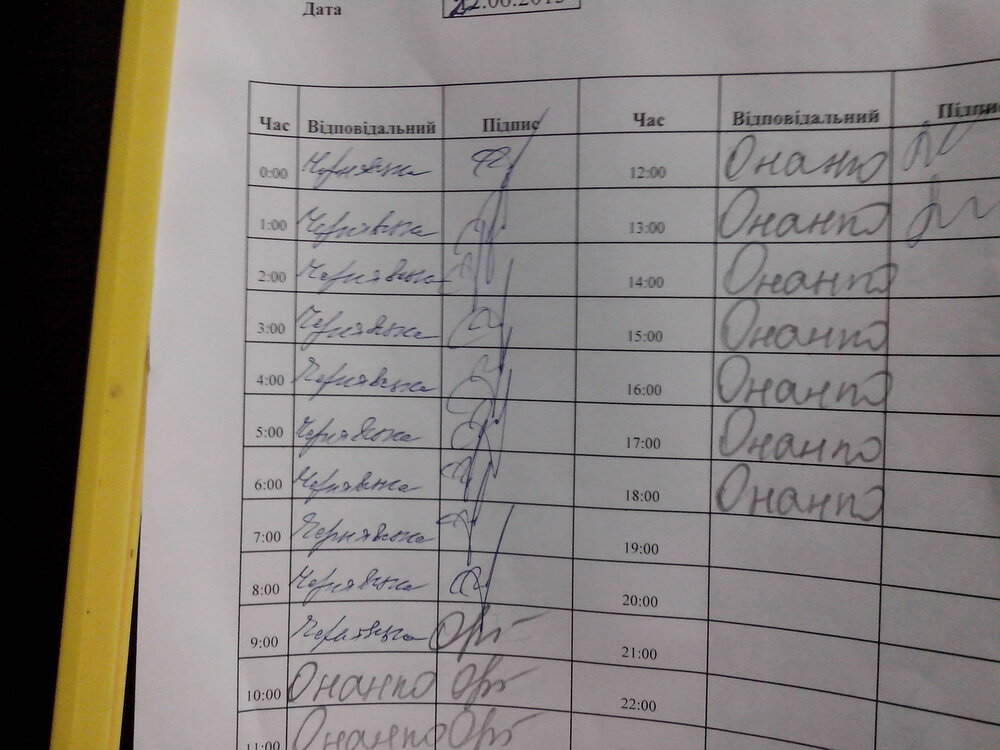 Дата
22.06.2015
Час Відповідальний Підпис Час Відповідальний Підпис
0:00 Чернявська 12:00 Онанко
1:00 Чернявська 13:00 Онанко
2:00 Чернявська 14:00 Онанко
3:00 Чернявська 15:00 Онанко
4:00 Чернявська 16:00 Онанко
5:00 Чернявська 17:00 Онанко
6:00 Чернявська 18:00 Онанко
7:00 Чернявська 19:00
8:00 Чернявська 20:00
9:00 Чернявська 21:00
10:00 Онанко 22:00
11:00 Онанко